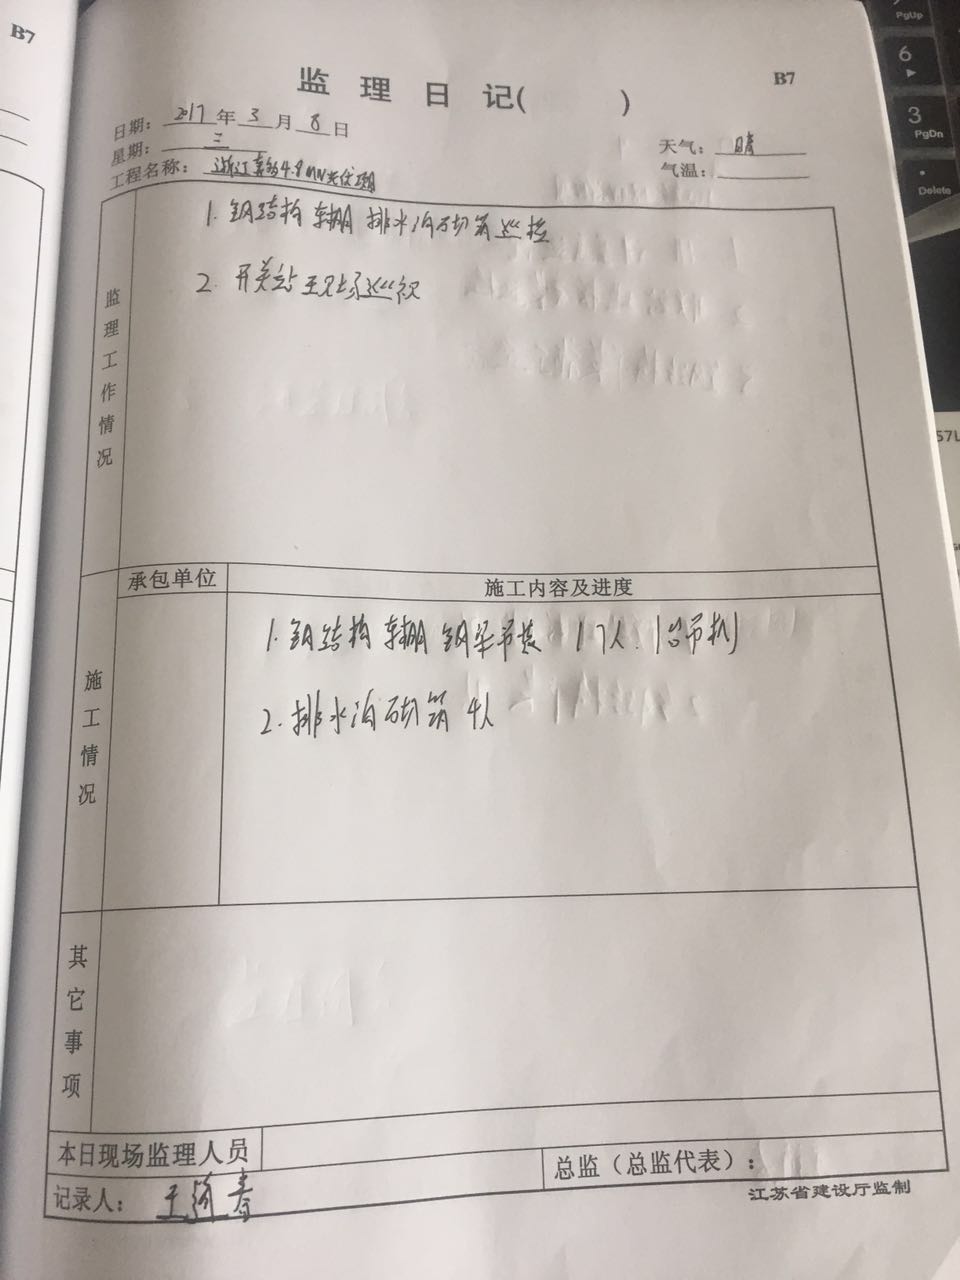 B7
PgUp
6
3
PgDn
Delete
57L
监理日记( )
B7
日期: 2017年3月8日
星期: 三
天气: 晴
工程名称: 浙江 4.8MW光伏项目
气温:
监理工作情况
1. 钢结构 车棚 排水沟砌筑巡检
2. 开关站 现场巡视
承包单位
施工内容及进度
施工情况
1. 钢结构 车棚 钢梁吊装 17人. 1台吊机
2. 排水沟砌筑 4人
其它事项
本日现场监理人员
总监（总监代表）:
记录人: 王 春
江苏省建设厅监制